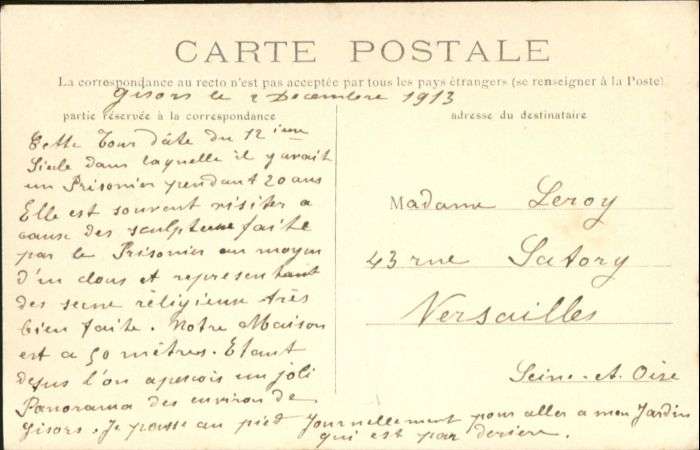 CARTE POSTALE
La correspondance au recto n'est pas acceptée par tous les pays étrangers (se renseigner à la Poste).
Gisors le 2 Decembre 1913
partie réservée à la correspondance
adresse du destinataire
Cette Tour dâte du 12 ieme
Siécle dans laquelle il y avait
un Prisonier pendant 20 ans
Elle est souvent visiter a
cause des sculpteure faite
par le Prisonier au moyen
d'un clous et representant
des sene réligieux très
bien faite. Notre Maison
est a 50 mètres. Etant
desus l'on apercois un joli
Panorama des environ de
Gisors. Je passe au pied Journellement pour aller a mon Jardin
qui est par deriere.
Madame Leroy
43 rue Satory
Versailles
Seine-et-Oise